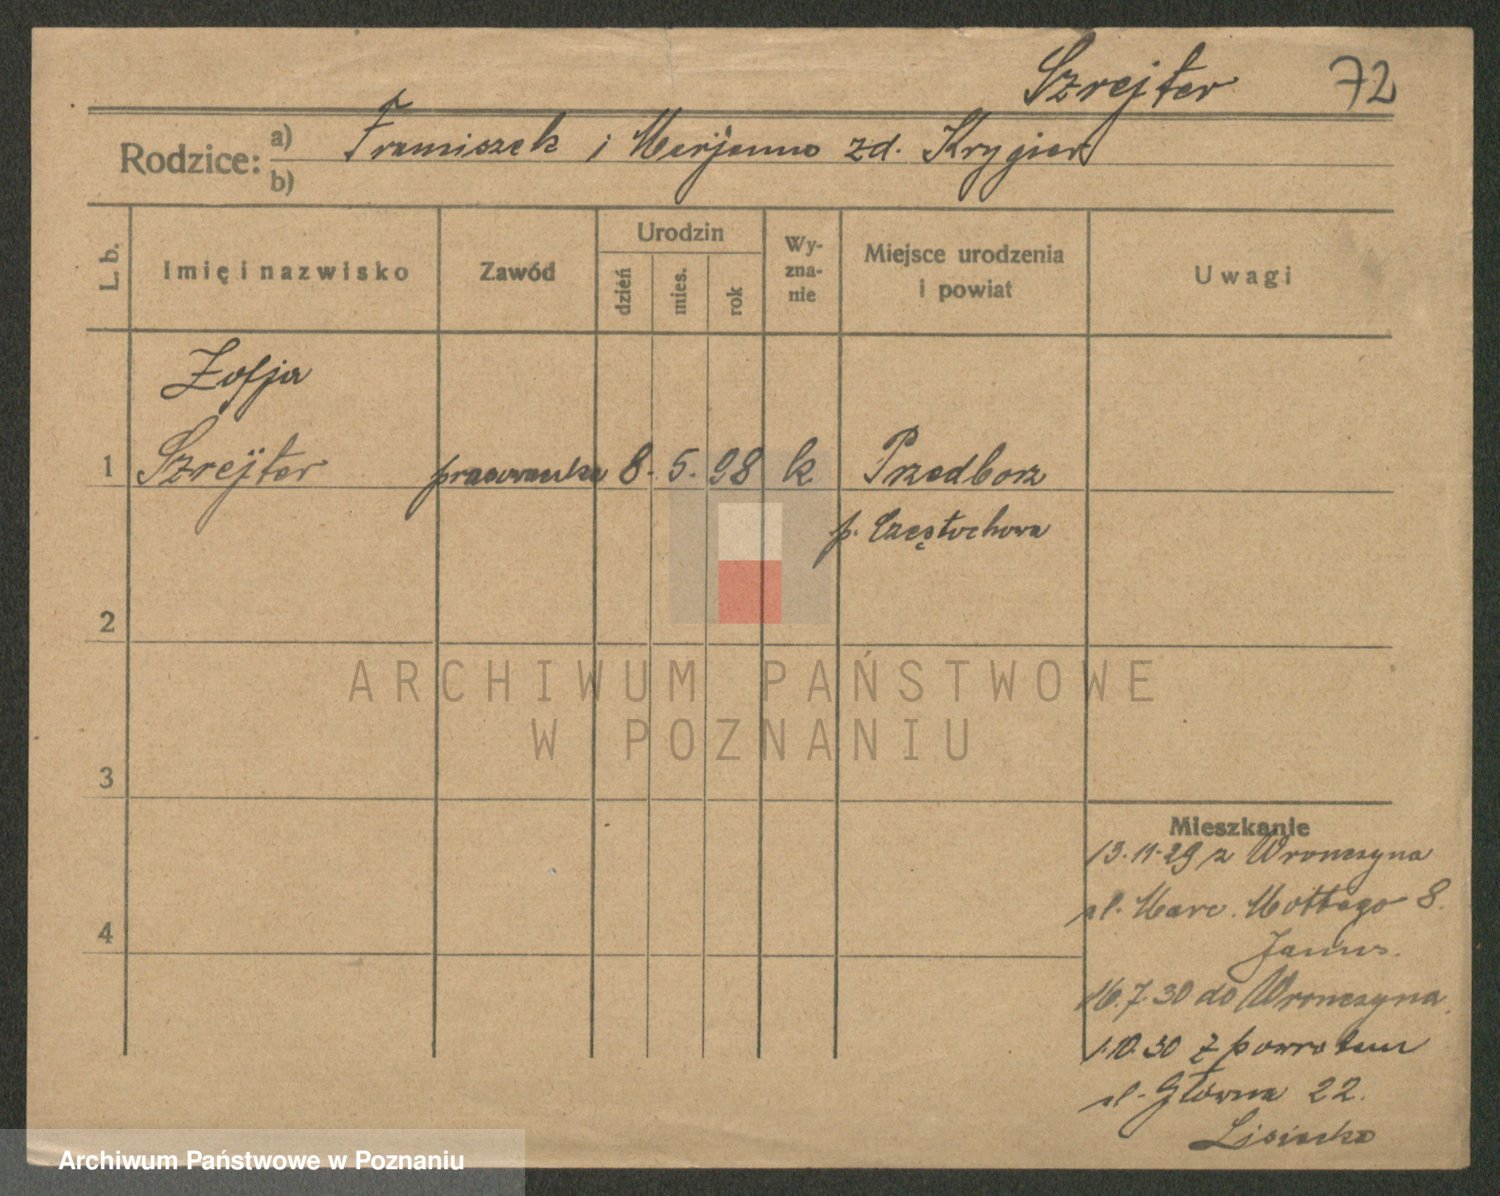 Szrejter 72
Rodzice: a) Franciszek i Marjanna zd. Krygier
b)
L. b. Imię i nazwisko Zawód Urodzin Wy-zna-nie Miejsce urodzenia i powiat Uwagi
dzień mies. rok
Zofja
1 Szrejter pracownica 8. 5. 98 k. Przedborz
p. Częstochowa
2
ARCHIWUM PAŃSTWOWE
W POZNANIU
3
Mieszkanie
13.11.29 z Wronczyna
ul. Marc. Mottego 8.
4
Janus.
16.7.30 do Wronczyna
1.10.30 z powrotem
ul. Główna 22.
Lisiecka
Archiwum Państwowe w Poznaniu